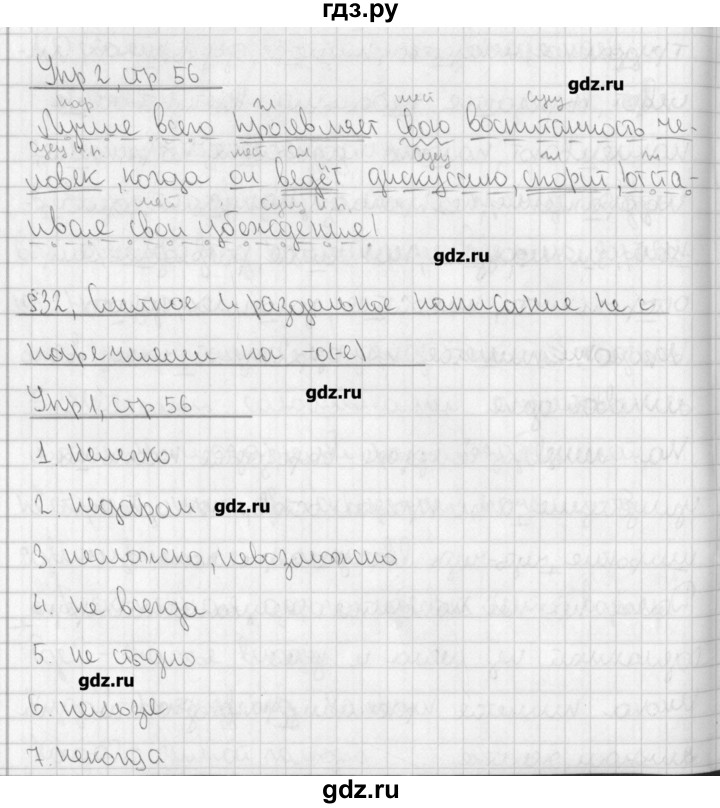 гдз.ру
Упр 2, стр 56
gdz.ru
нар гл мест сущ
Лучше всего проявляет свою воспитанность че-
сущ И.п. мест гл сущ гл
ловек, когда он ведёт дискуссию, спорит, отста-
мест сущ В.п.
ивая свои убеждение!
gdz.ru
§32, Слитное и раздельное написание не с
наречиями на -о(-е)
gdz.ru
Упр 1, стр 56
1. Нелегко
2. Недаром gdz.ru
3 несложно, невозможно
4. не всегда
5. не стыдно
gdz.ru
6. нельзя
7. некогда
gdz.ru